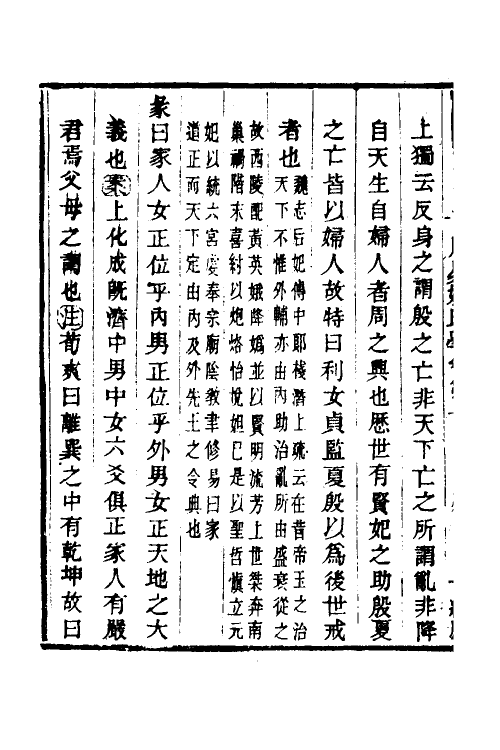 上獨云反身之謂殷之亡非天下亡之所謂亂非降
自天生自婦人者周之興也歷世有賢妃之助殷夏
之亡皆以婦人故特曰利女貞監夏殷以為後世戒
者也魏志后妃傳中郎棧潛上疏云在昔帝王之治
天下不惟外輔亦由內助治亂所由盛衰從之
故西陵配黃英娥降媯並以賢明流芳上世桀奔南
巢禍階末喜紂以炮烙怡悅妲己是以聖哲慎立元
妃以統六宮虔奉宗廟陰教聿修易曰家
道正而天下定由內及外先王之令典也
彖曰家人女正位乎內男正位乎外男女正天地之大
義也案上化成既濟中男中女六爻俱正家人有嚴
君焉父母之謂也注荀爽曰離巽之中有乾坤故曰